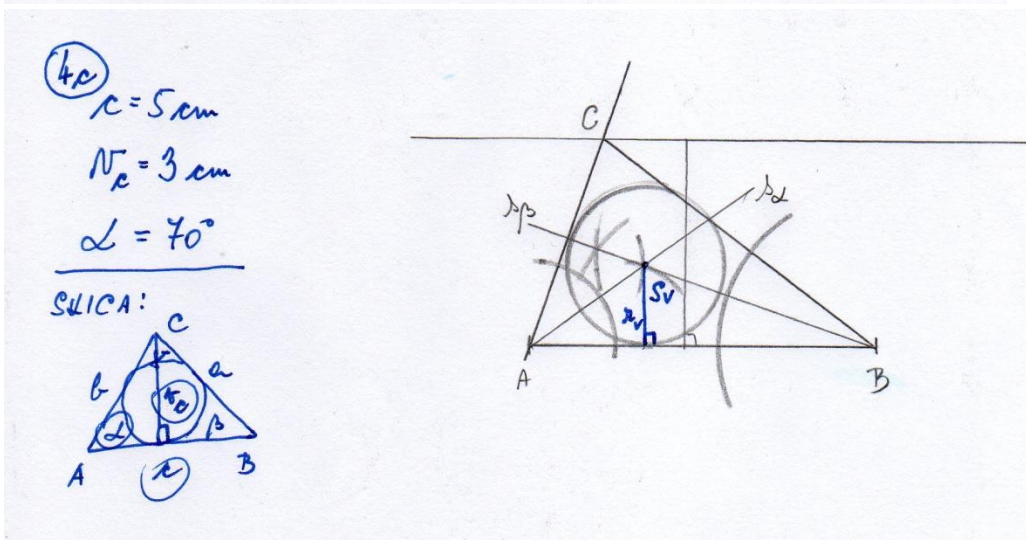 4c
c = 5 cm
v_c = 3 cm
α = 70°
SKICA:
C
b
a
v_c
α
β
A
c
B
C
s_β
s_α
S_v
r_v
A
B